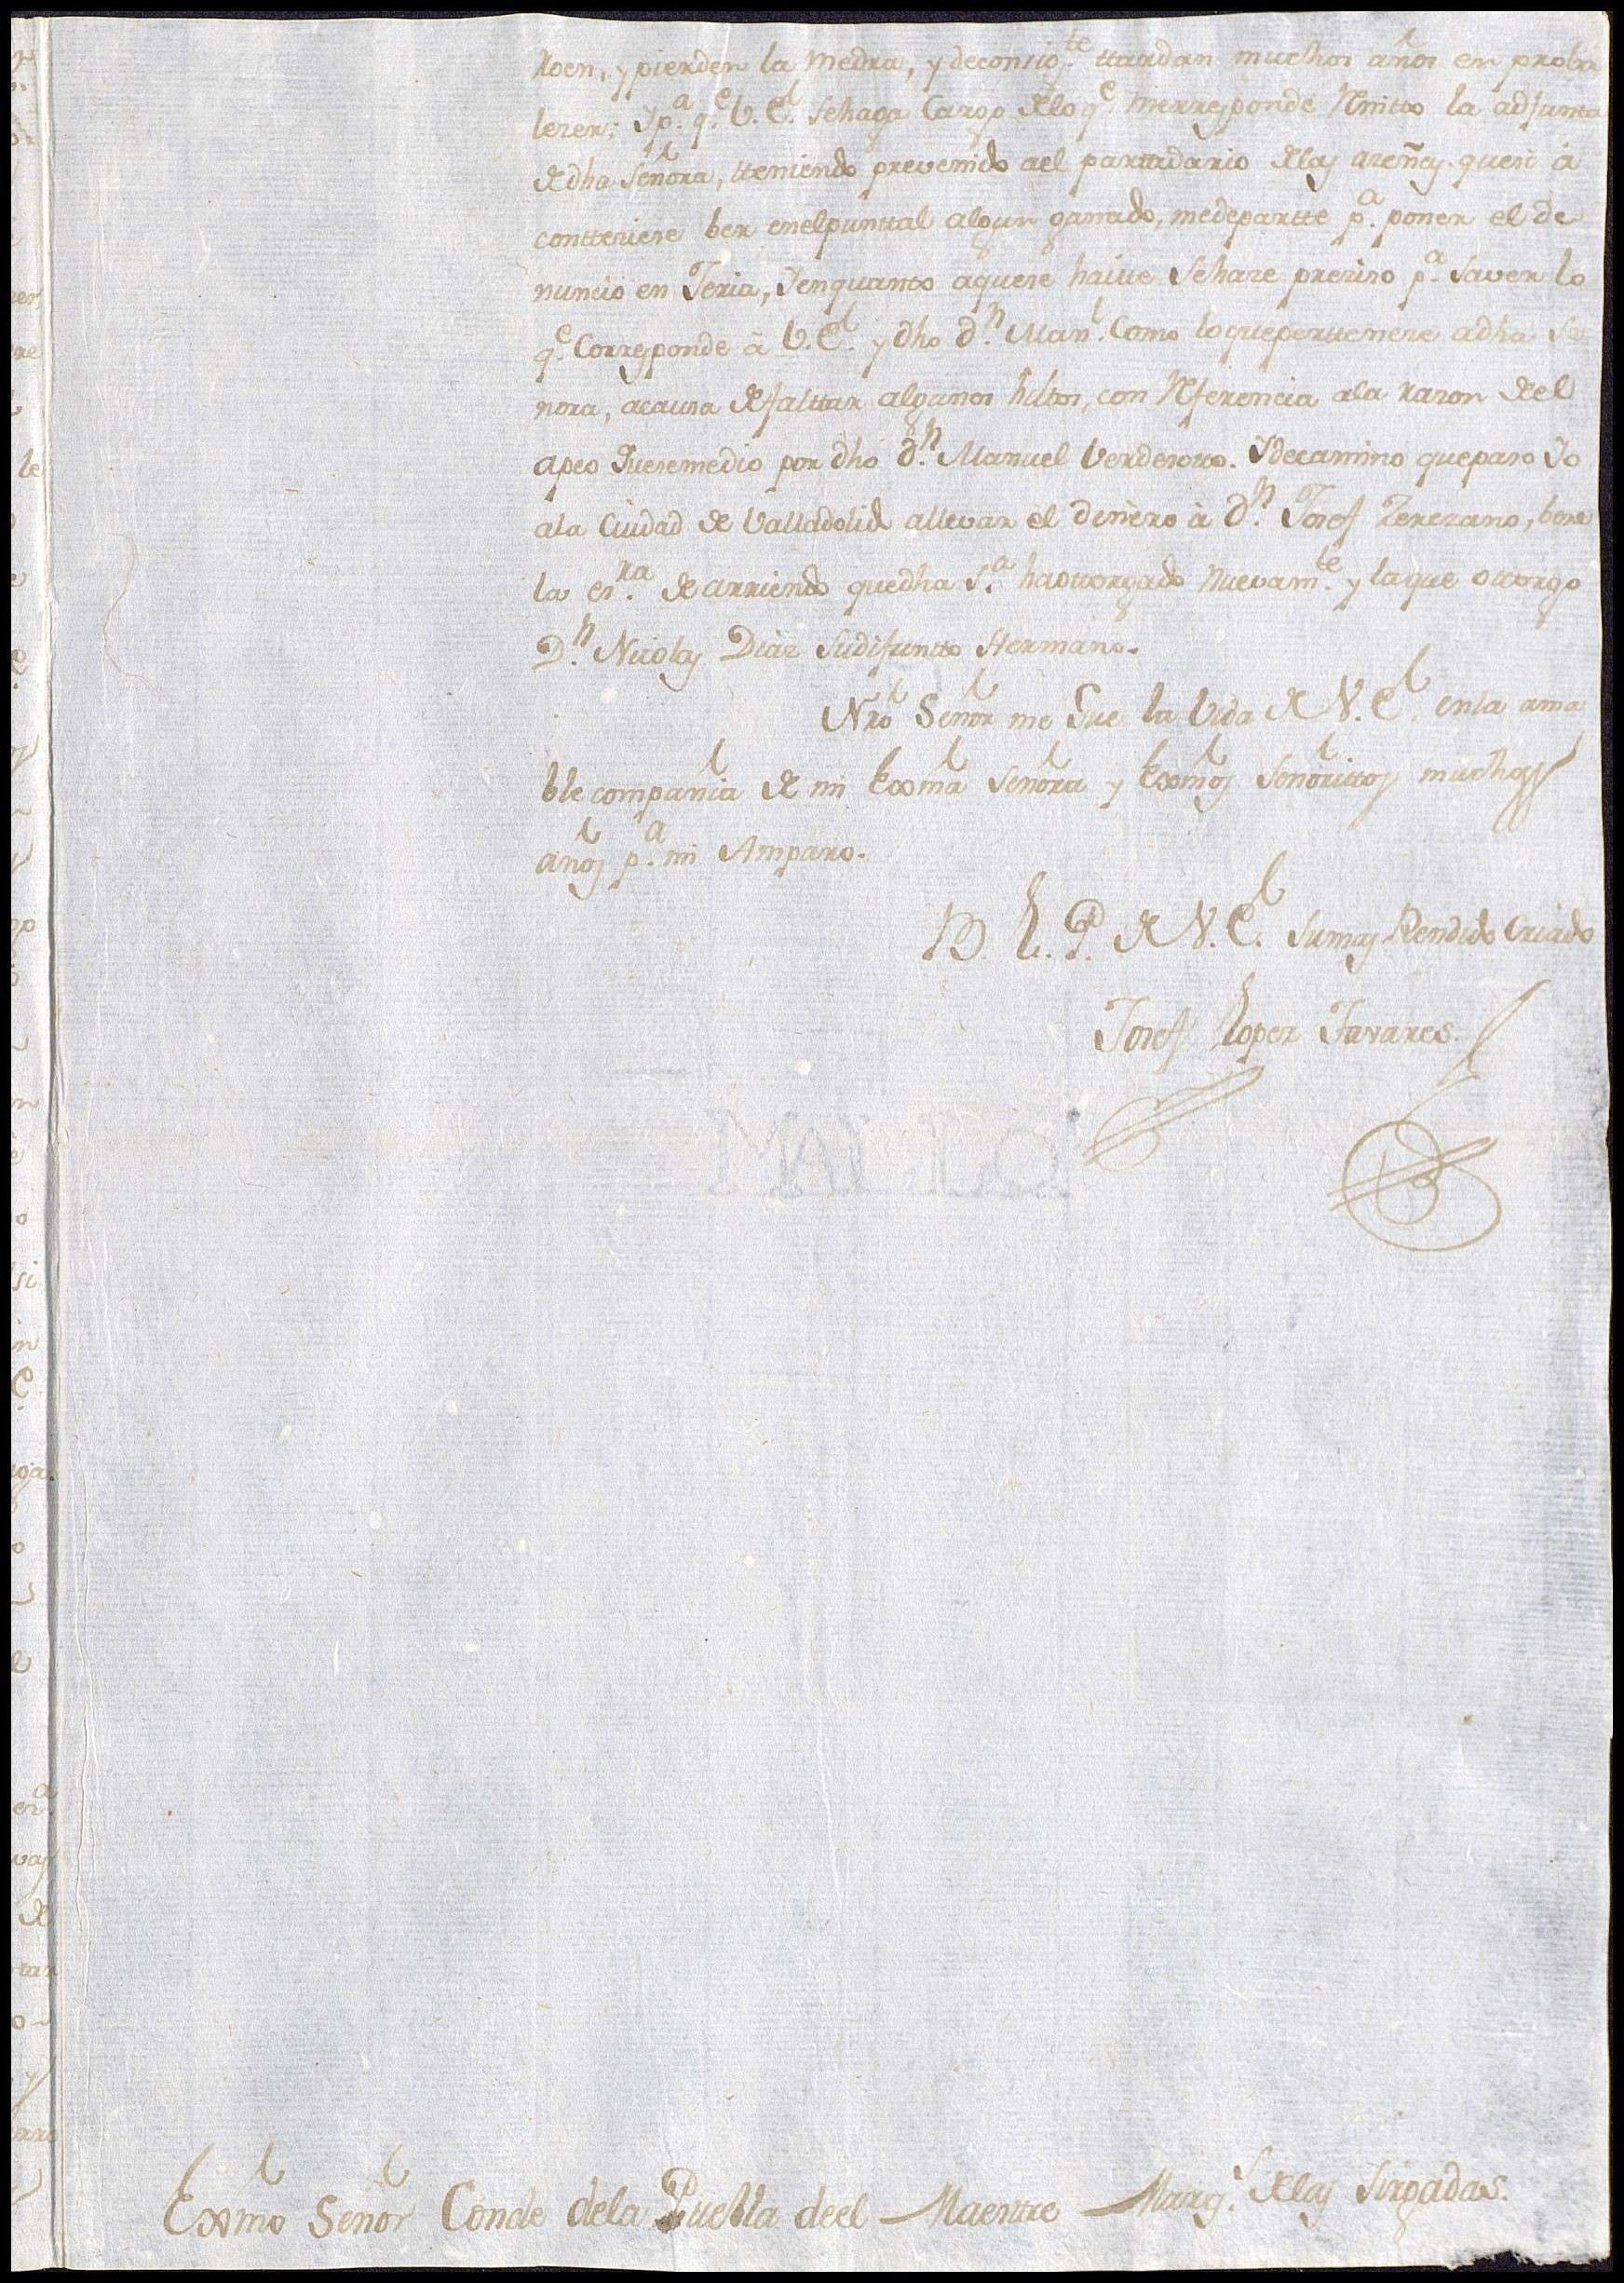 Roen, y pierden la medra, y deconsigte. ttardan muchos años en proba
lezer; Ypa. qe. V.E. sehaga Cargo deloqe. merresponde Rmitto la adjunta
dedha Señora, tteniendo prevenido ael parttidario delas azeñas quesi à
contteziere ber enelpunttal algun ganado, medepartte pa. poner el de
nuncio en Feria, Yenquanto aquese haive sehaze preziso pa. saver lo
qe. Corresponde à V.E. y dho dn. Manl. Como loquepertteneze adha Se
ñora, acausa defalttar algunos hittos, con Rferencia ala razon deel
apeo Quesemedio por dho dn. Manuel Verdesotto. Ydecamino quepaso Yo
ala Ciudad de Valladolid allevar el dinero à dn. Josef Zerezano, bere
la esra. de arriendo quedha sa. haottorgado nuevamte. y laque ottorgo
Dn. Nicolas Diaz sudifuntto Hermano.
Nro Señor me Gue la Vida de V.E. enla ama
ble compañia de mi Exma Señora y Exmos Señorittos muchos
años pa. mi Amparo.
B. L. P. de V.E. sumas Rendido Criado
Josef Lopez Tavares.
Exmo Señor Conde dela Puebla deel Maestre Marqs. delas